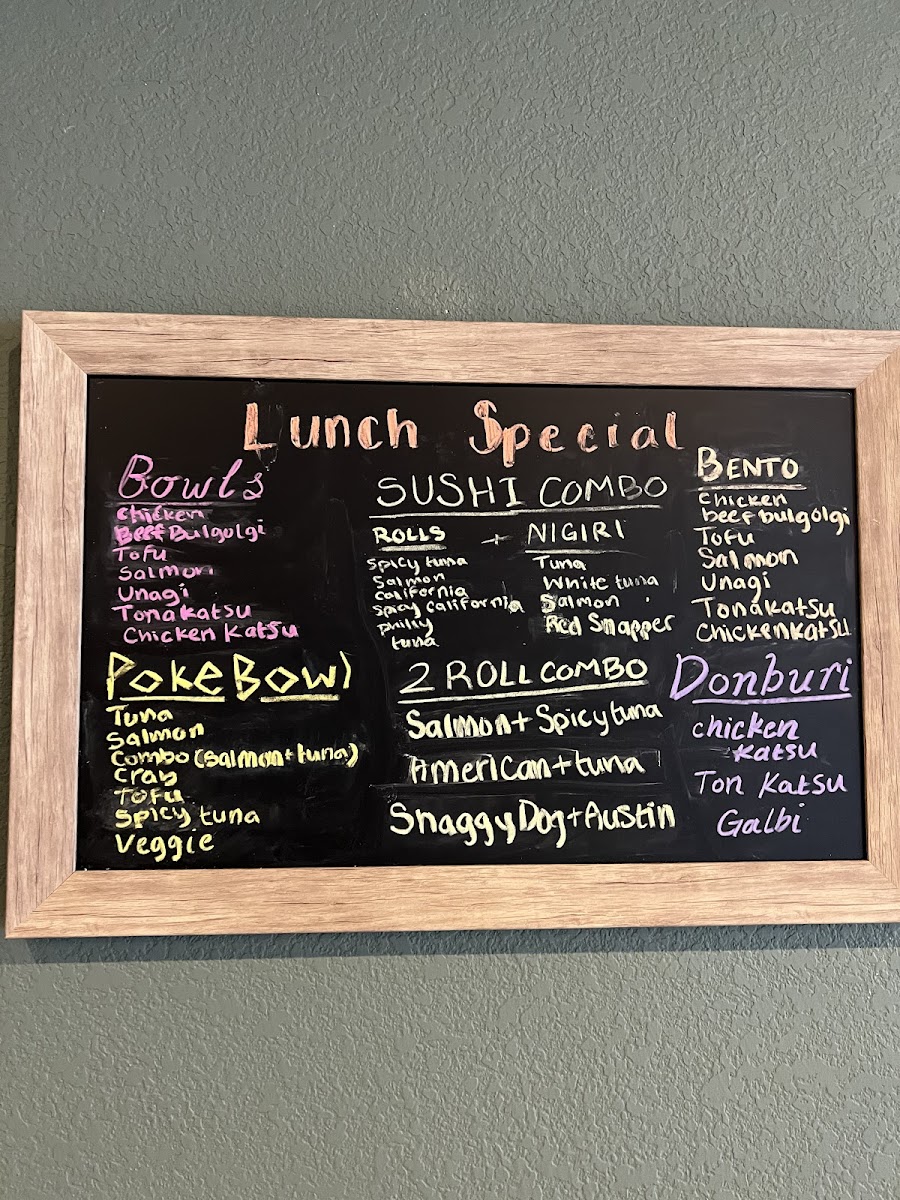 Lunch Special
Bowls
Chicken
Beef Bulgolgi
Tofu
Salmon
Unagi
Tonakatsu
Chicken Katsu
Poke Bowl
Tuna
Salmon
Combo (salmon + tuna)
Crab
Tofu
Spicy tuna
Veggie
SUSHI COMBO
ROLLS + NIGIRI
Spicy tuna
Salmon
California
Spicy California
philly
tuna
Tuna
White tuna
Salmon
Red Snapper
2 ROLL COMBO
Salmon + Spicy tuna
American + tuna
Shaggy Dog + Austin
BENTO
Chicken
beef bulgolgi
Tofu
Salmon
Unagi
Tonakatsu
Chicken katsu
Donburi
chicken
katsu
Ton Katsu
Galbi